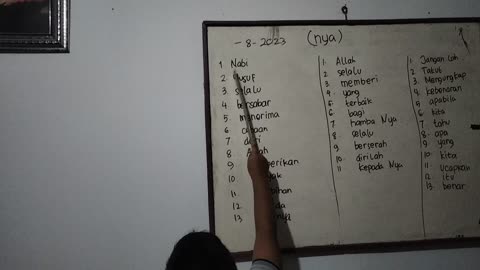 -8-2023 (nya)
1 Nabi
2 Yusuf
3. selalu
4. bersabar
5 menerima
6
7 dari
8 Allah
9
10
11
12.
13
1. Allah
2 selalu
3. memberi
4. yang
5. terbaik
6 bagi
7 hamba Nya
8. selalu
9. berserah
10. dirilah
11. kepada Nya
1. Jangan lah
2. Takut
3. Mengungkap
4. kebenaran
5. apabila
6. kita
7. tahu
8. apa
9. yang
10. kita
11. ucapkan
12. itu
13. benar